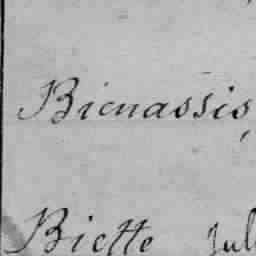 Bienassis,
Biette Jul